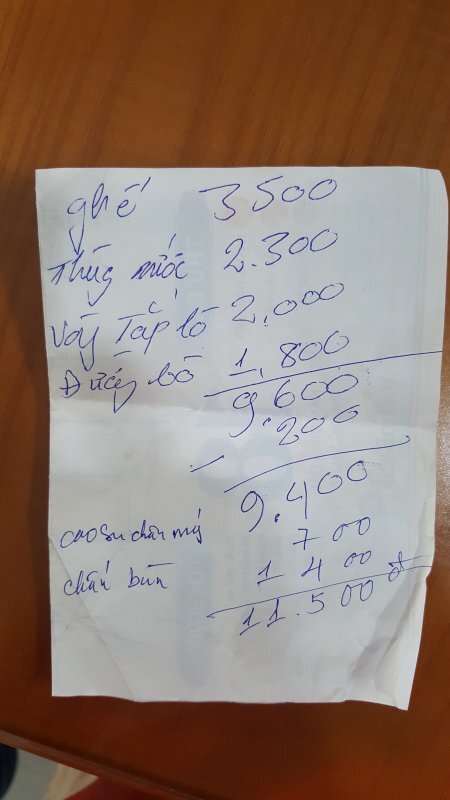 ghế 3500
Thùg nước 2.300
Váy Tắp lô 2.000
Đường bô 1.800
9.600
- .200
9.400
cao su chân máy 700
chắn bùn 1 400
11.500 đ